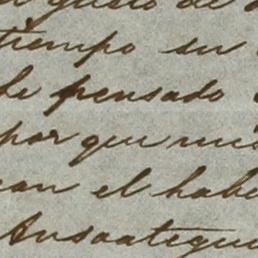 gusto de
tiempo en
he pensado
por que mis
can el habe
Ansoategui